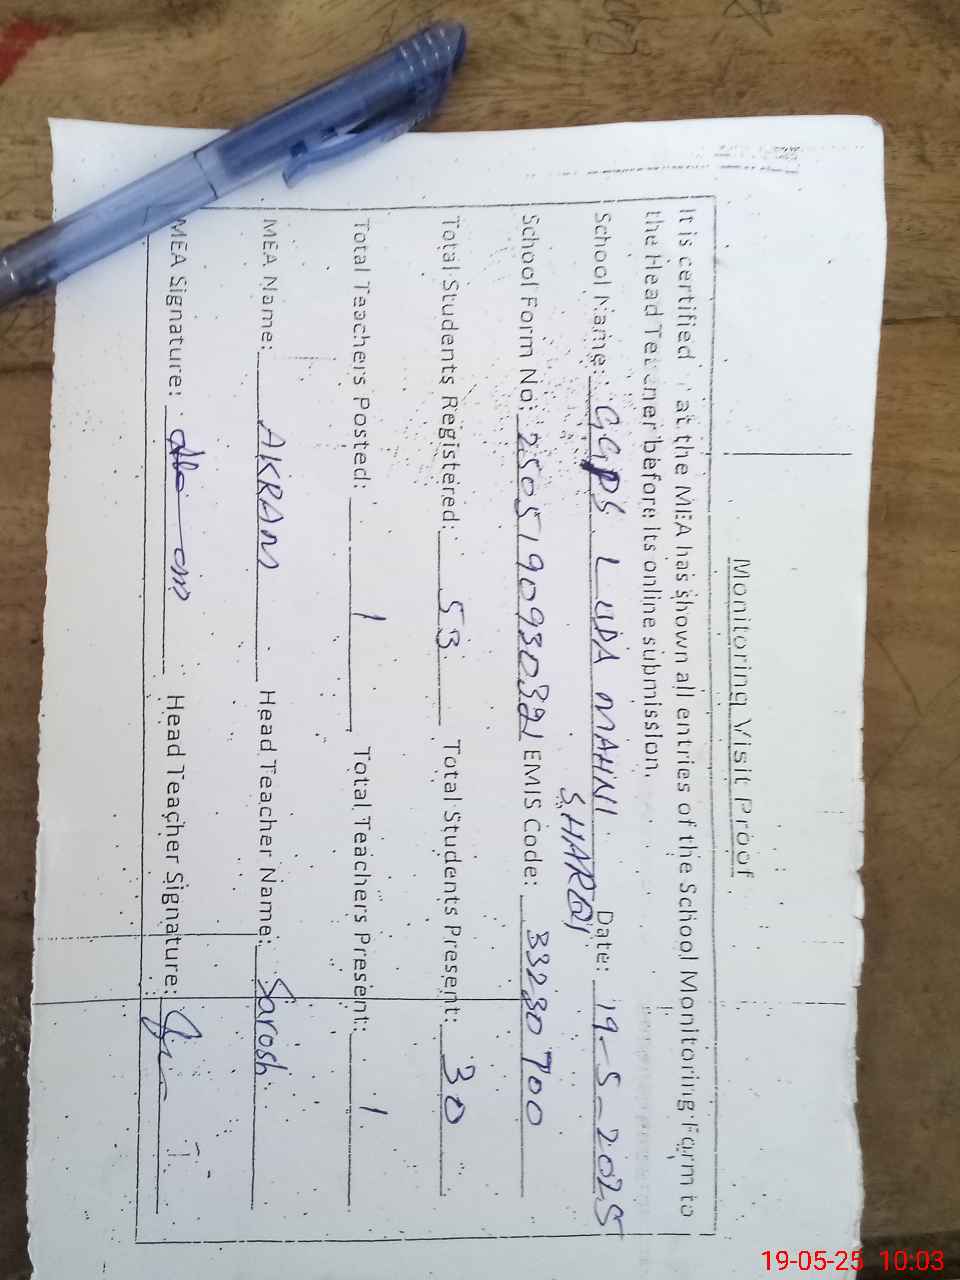 Monitoring Visit Proof
It is certified at the MEA has shown all entries of the School Monitoring Form to
the Head Teacher before its online submission.
School Name: GGPS LUDA MAHNI SHARQI Date: 19-5-2025
School Form No: EMIS Code: 33230700
Total Students Registered: 53 Total Students Present: 30
Total Teachers Posted: 1 Total Teachers Present: 1
MEA Name: AKRAM Head Teacher Name: Sarosh
MEA Signature: Head Teacher Signature:
19-05-25 10:03